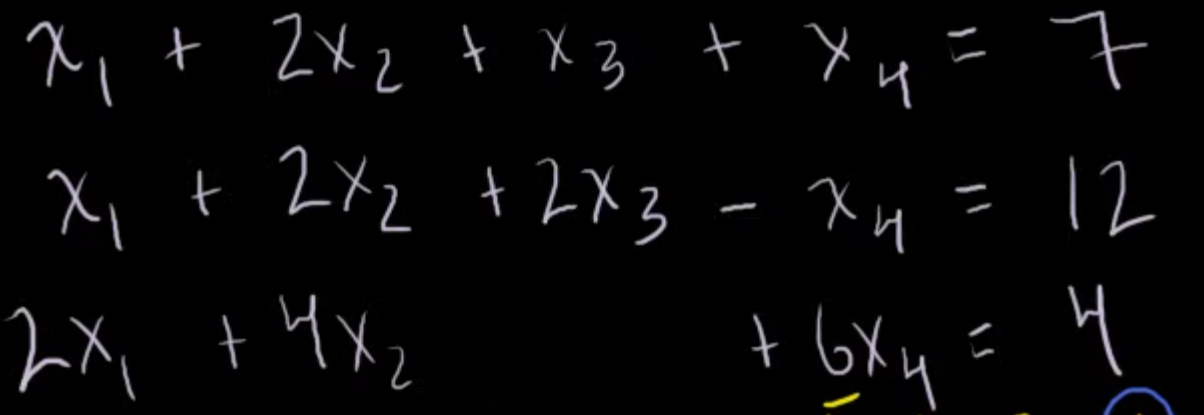 x₁ + 2x₂ + x₃ + x₄ = 7
x₁ + 2x₂ + 2x₃ - x₄ = 12
2x₁ + 4x₂ + 6x₄ = 4